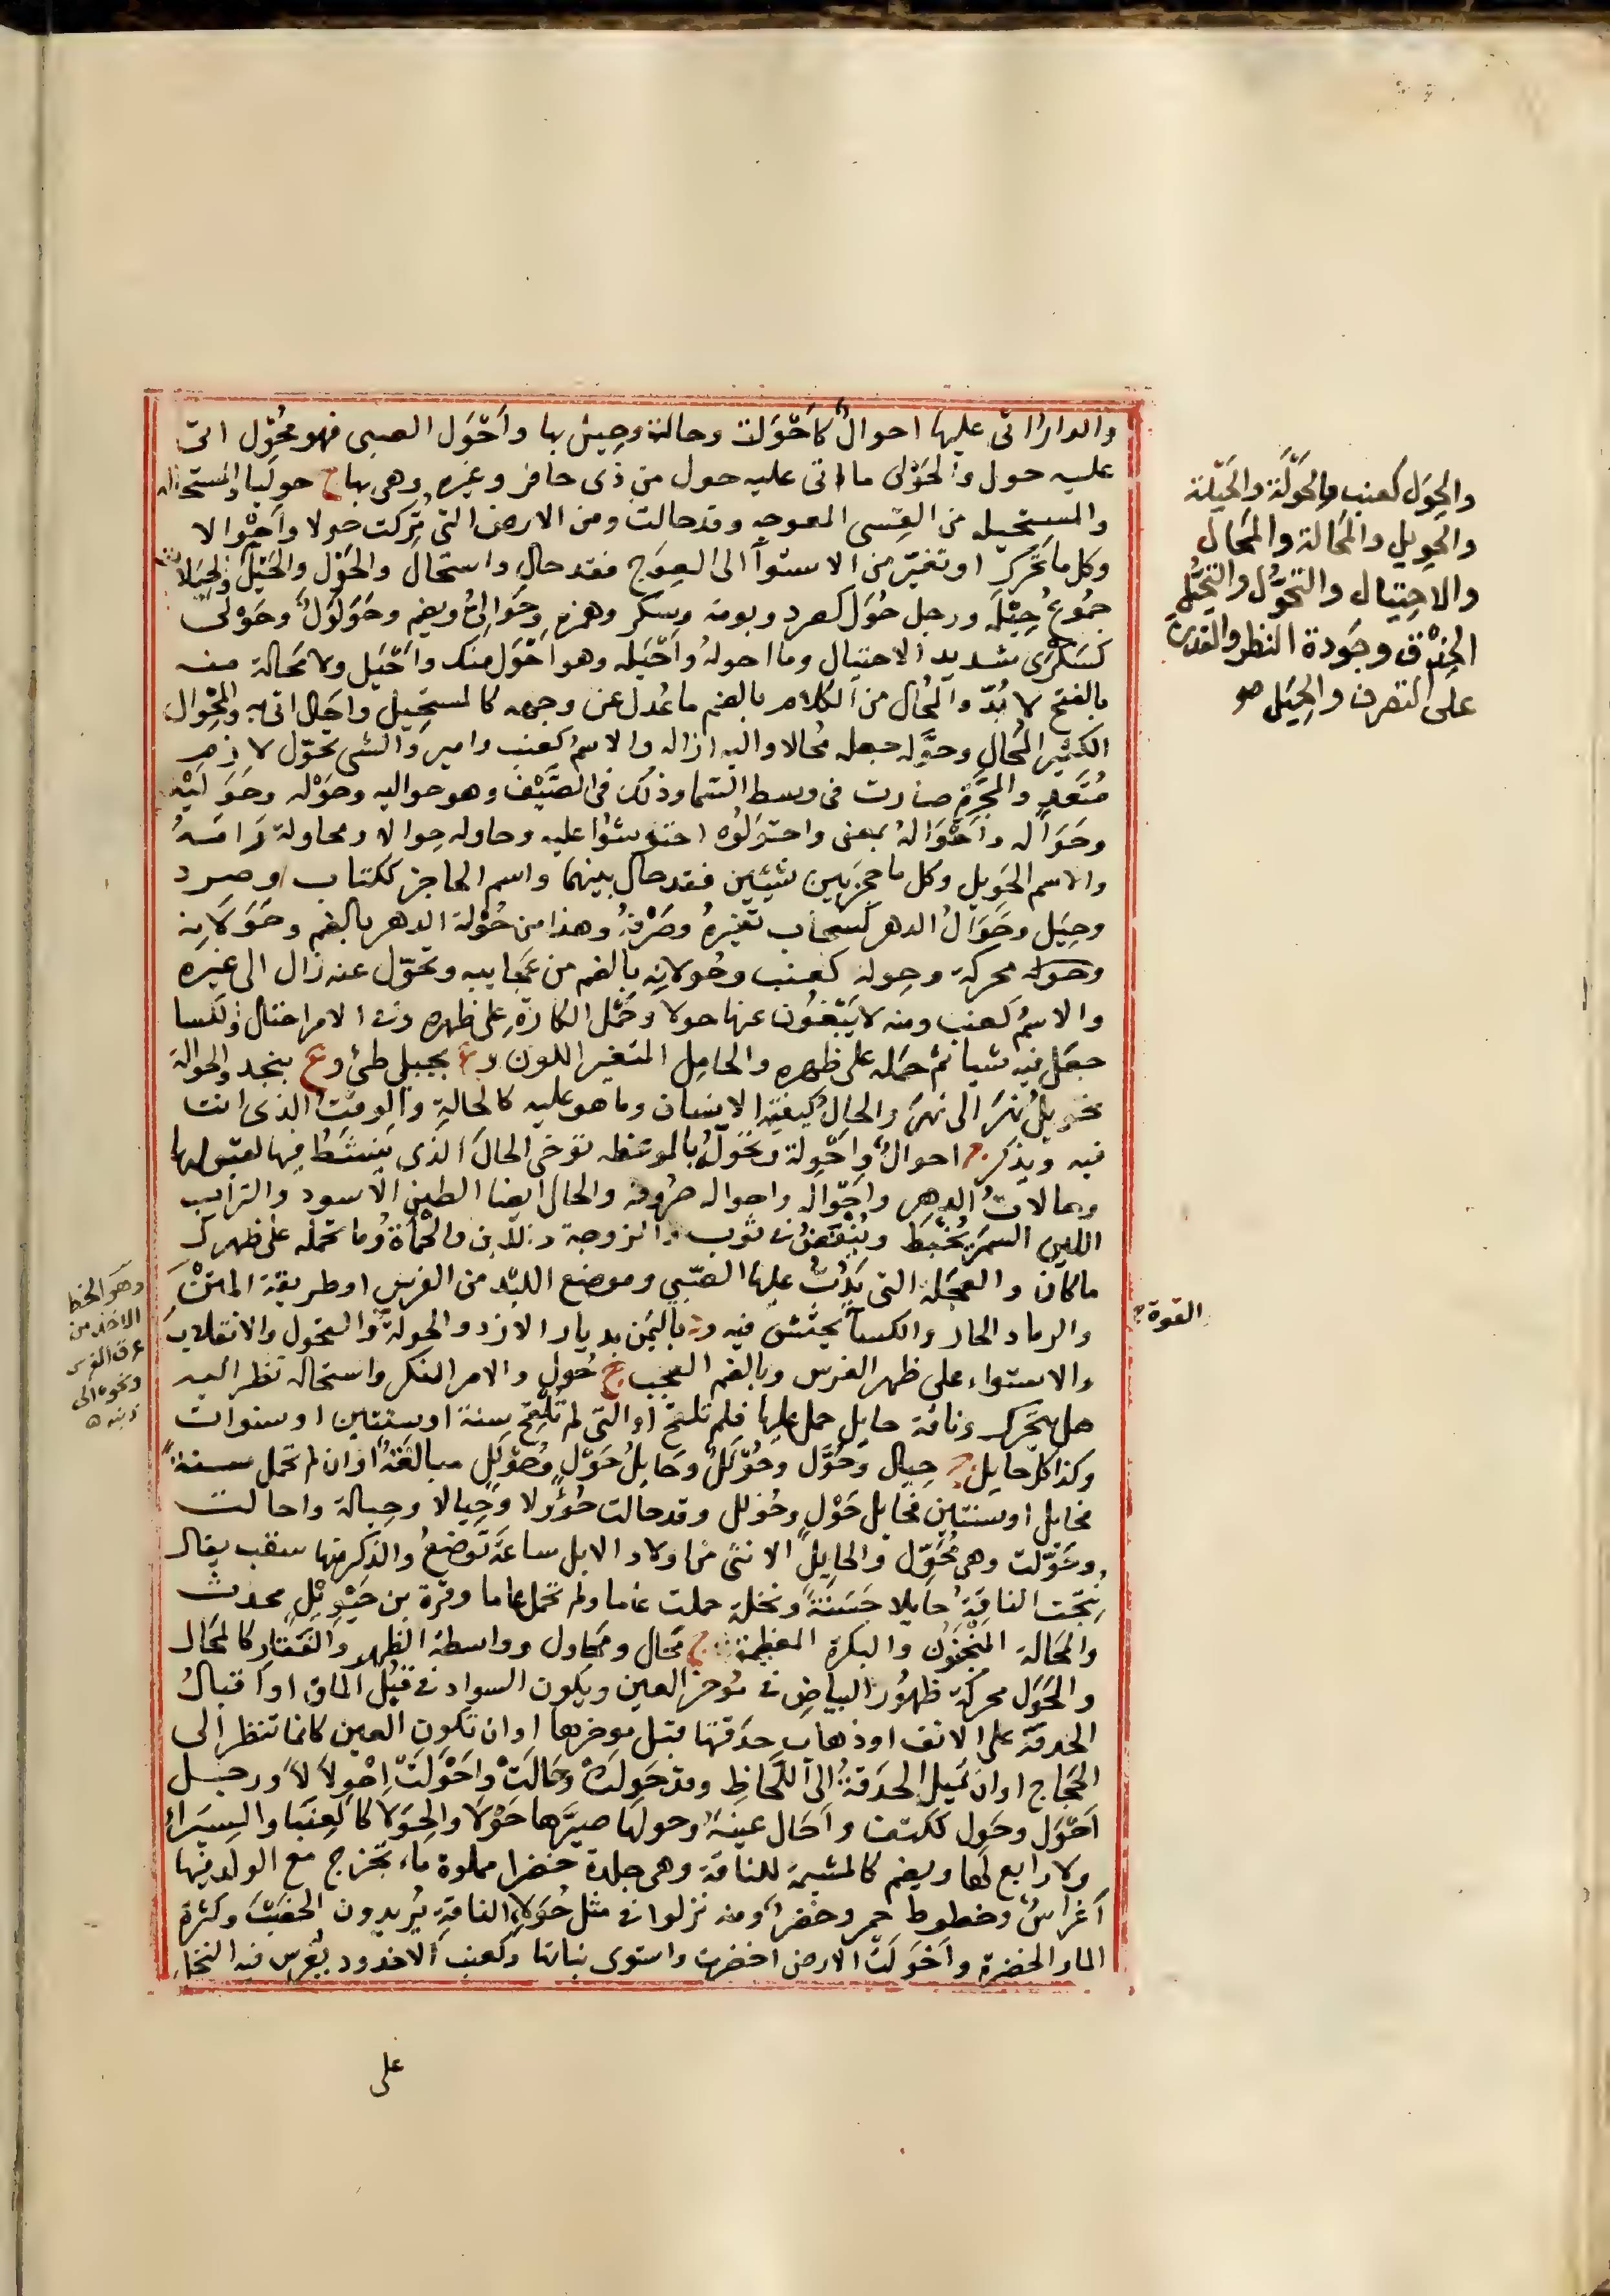 والدار اتى عليها احوالٌ كاَحْوَلت وحالت وحِيلَ بها واَحْوَل الصبى فهو مُحْوِل اتى
عليه حول والحَوْلى ما اتى عليه حول من ذى حافر وغيره وهى بهاء ج حوليات والمستحالة
والمستحيلة من القِسى المعوجه وقد حالت ومن الارض التى تُركت حولا واَحْوالا
وكل ما تَحَرك او تغيّر من الاستوآ الى العِوَج فقد حال واستحال والحَوْل والحَيْل
جُمُوعُ حِيْلَة ورجل حُوَل كصرد وبومة وسكر وهمزة وحَوَالِىُّ ويضم وحَوَلْوَلٌ وحَوْلىٌ
كسَكْرَى شديد الاحتيال وما احولهُ واَحْيَله وهو احْوَل منك واَحْيَل ولا مَحالة منه
بالفتح لا بُدّ والمُحال من الكلام بالضم ما عُدل عن وجهه كالمستحِيل واَحَال اتى به والمِحْوال
الكثير المُحالِ وحوَّله جعله مُحالا واليه ازاله والاسمُ كعنب وامير والشى تحوّل لازم
مُتَعدٍ والمَجَرة صارت فى وسط السَّما وذلك فى الصَّيْف وهو حواليه وحَوْله وحَوَليْه
وحَوَاله واَحْوَالهُ بمعنى واحتَوَلوُه احتوشُوا عليه وحاوله حِوالا ومحاولة رَامَهُ
والاسم الحَوِيل وكل ما حجز بين شيئين فقد حال بينهما واسم الحاجز ككتاب وصرد
وجَبَل وحَوَالُ الدهر كسحاب تغيرهُ وصَرْفهُ وهذا من حُوْلة الدهر بالضم وحَوَلانِه
وحوله محركة وحِوله كعنب وحُولائِهِ بالضم من عجايبه وتحوّل عنه زال الى غيره
والاسمُ كعنب ومنه لا يَبْغُون عنها حولا وحَمَل الكارَة على ظهره وفى الامر احتال والكسا
جعل فيه شيا ثم حمله على ظهره والحامِل المتغير اللون وع بجبلى طىٔ وع بنجد والحوالة
تحويلُ نهرَ الى نهرَ والحالُ كيفيّة الانسان وما هو عليه كالحالةِ والوقتُ الذى انت
فيه ويذكر ج احوالٌ واَحْوِلة وتحَوَّلَهُ بالموعظه توخى الحالَ الذى يَنشَطُ فيها لقبولها
وحالاتُ الدهر واَحْوَاله واحواله صُروفه والحال ايضا الطين الاسود والتراب
اللين السمر يُخْبَط ويُنْفَضُ فى ثوب والزوجة واللّبن والحْمأةُ وما تحمله على ظهرك
ما كان والعجَلة التى يَدِبُّ عليها الصّبى وموضع اللبْد من الفرس او طريقة المتنَ
والرماد الحار والكسآ يُحْتشّ فيه ود باليَمن بديار الازد والحولة والتحول والانقلاب
والاستواء على ظهر الفرس وبالضم العجب ج حُول والامر المنكر واستحاله نظر اليه
هل يتحَرك وناقة حايل حمل عليها فلم تلقَح او التى لم تُلقَح سنة او سنتين او سنوات
وكذا كل حايل ج حِيال وحُوَّل وحُوْلَلٌ وحَايلُ حَوْل وحُوْلَلٍ مبالغَةٌ او ان لم تحمل سنةً
فحايل او سنتين فحايل حَوْلٍ وحُولل وقد حالت حُؤُولا وحِيالا وحِيالة واحالت
وحَوَّلت وهى مُحَوِّل والحايلُ الانثى من اولاد الابل ساعة تُوضعُ والذكر منها سقب يقال
نِتجت الناقةُ حايلا حَسَنَةً ونخلة حملت عاما ولم تحمل عاما وقرة بن حَيْوِيْلٍ محدث
والمَحَالة المنْجَنُون والبكرة العظيمة ج مَحال ومحاول وواسطة الظهر والفَقار كالمَحَال
والحَوَل محركة ظهُورُ البياض فى مُوخر العين ويكون السواد فى قبَل الماق او اقبالُ
الحدقة على الانف او ذهاب حدَقتها قبل موخرها او ان تكون العين كانما تنظر الى
الحَجاج او ان تَميل الحدَقةُ الى اللَّحاظِ وقد حَوِلَتْ وحَالَتْ واحْوَلّتْ اِحْولاَلاً ورجل
اَحْوَل وحَوِل ككتف واَحَال عينهُ وحولها صيَّرها حَوْلآ والحِوَلآ كالعِنَبَآ والسِّيَرَاء
ولا رابع لها ويضم كالمشيمة للناقة وهى جلدة خضرا مملوة ماء تخرج مع الولد فيها
اَغراسٌ وخطوط حمر وخُضر ومنه نزلوا فى مثل حُوَلاءِ الناقةِ يُريدون الخصْبَ وكثرة
الما والخضرة واَحْوَلّت الارض اخضرت واستوى نباتها وكعنب الاخدود يُغرس فيه النخل
على
والحِوَل كعنب والحَوْلَة والحَيْلة
والحَويل والمَحَالة والمَحال
والاحتيال والتحَوُّل والتحيُّل
الحِذْق وجَودة النظر والقدرة
على التصرف والحِيَل صح
القوة ج
وهو الخط
الاخذ من
عرف الفرس
ونحوه الى
ذنبه